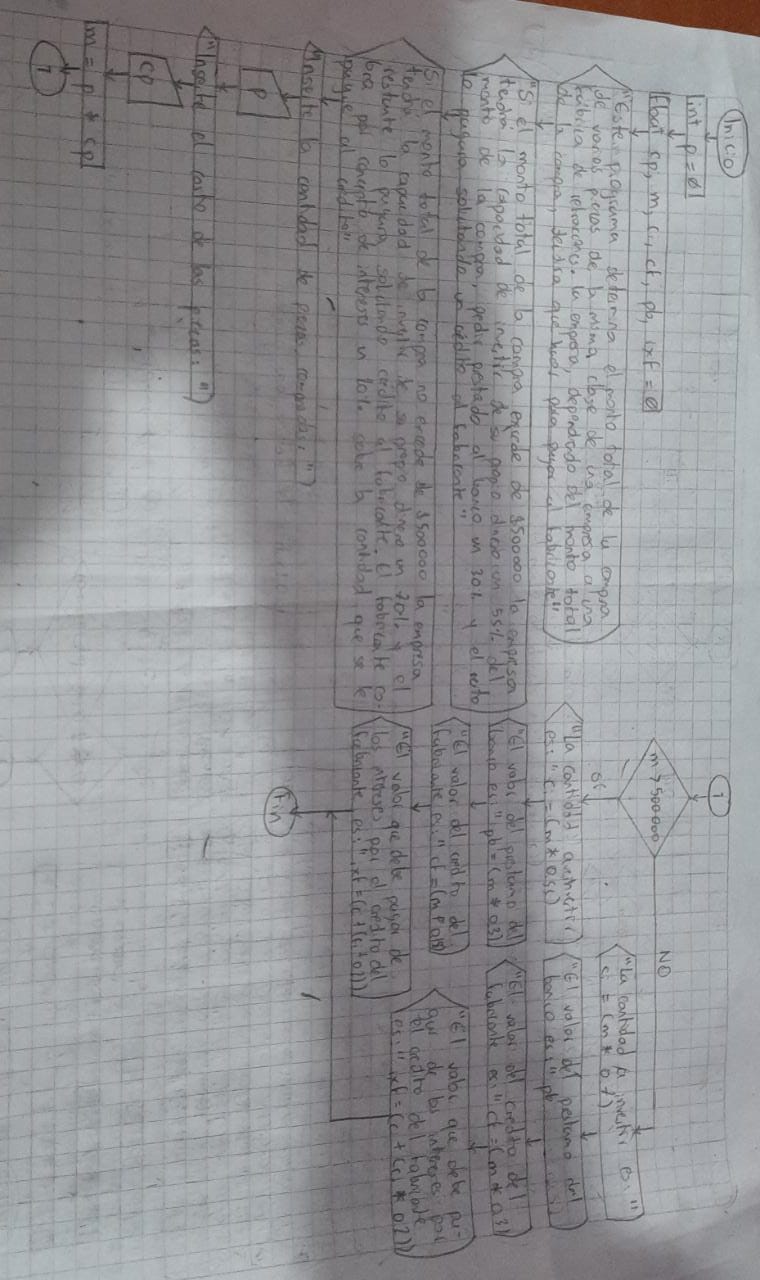 Inicio
int p = 0
float cp, m, ci, cf, pb, ixf = 0
"Este programa determina el monto total de la compra
de varias piezas de la misma clase de una empresa a una
fábrica de refacciones. La empresa, dependiendo del monto total
de la compra, decidira que hacer para pagar al fabricante"
"Si el monto total de la compra excede de $500000 la empresa
tendrá la capacidad de invertir de su propio dinero un 55% del
monto de la compra, pedir prestado al banco un 30% y el resto
lo pagara solicitando un crédito al fabricante"
"Si el monto total de la compra no excede de $500000 la empresa
tendrá la capacidad de invertir de su propio dinero un 70% y el
restante lo pagara solicitando crédito al fabricante. El fabricante co-
bra por concepto de intereses un 20% sobre la cantidad que se le
pague al crédito"
"Inserte la cantidad de piezas compradas: "
p
"Inserte el costo de las piezas: "
cp
m = p * cp
1
1
m > 500000
NO
si
"La cantidad a invertir
es: " ci = (m * 0.55)
"El valor del prestamo del
banco es: " pb = (m * 0.3)
"El valor del crédito del
fabricante es: " cf = (m *
"El valor que debe pagar de
los intereses por el crédito del
fabricante es: " ixf =
"La cantidad a invertir es: "
ci = (m * 0.7)
"El valor del prestamo del
banco es: " pb
"El valor del credito del
fabricante es: " cf = (m * 0.3)
"El valor que debe pa-
gar de los intereses por
el crédito del fabricante
es: " ixf =
Fin